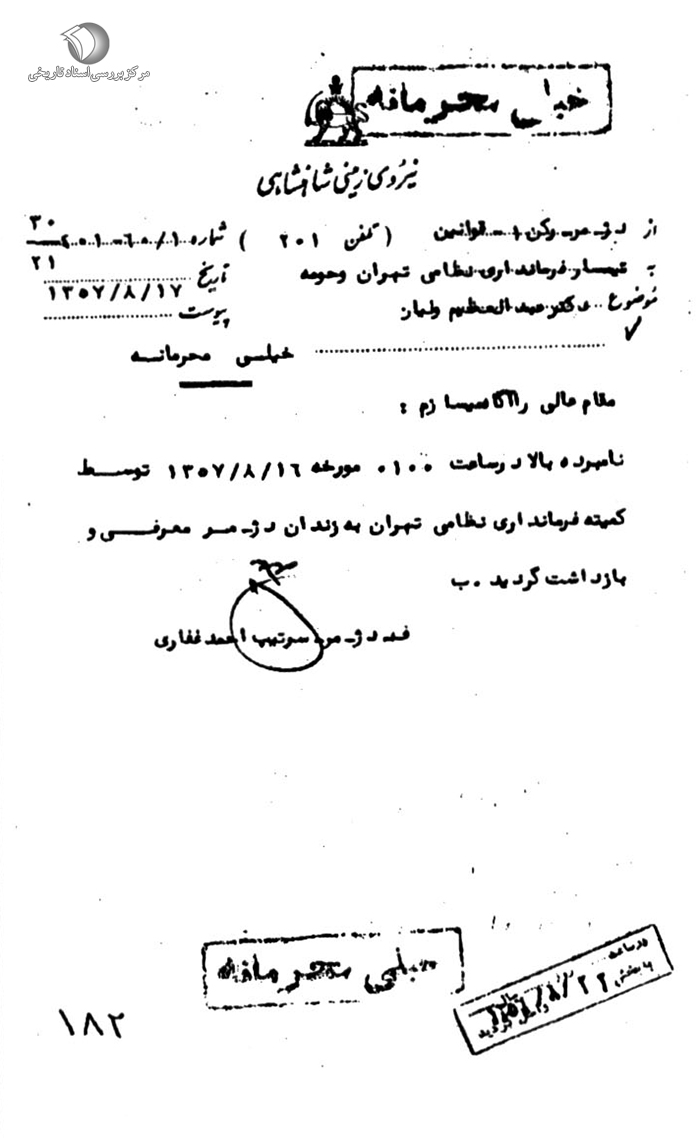 مرکز بررسی اسناد تاریخی
خیلی محرمانه
نیروی زمینی شاهنشاهی
از دژ مر رکن ۱ - قوانین ( تلفن ۲۰۱ ) شماره
۳۰
۲۱
به تیمسار فرمانداری نظامی تهران و حومه تاریخ ۱۳۵۷/۸/۱۷
موضوع دکتر عبدالعظیم ولیان پیوست
خیلی محرمانه
مقام عالی را آگاه میسازم :
نامبرده بالا در ساعت ۰۱۰۰ مورخه ۱۳۵۷/۸/۱۶ توسط
کمیته فرمانداری نظامی تهران به زندان دژ مر معرفی و
بازداشت گردید . ب
ف دژ مر سرتیپ احمد غفاری
خیلی محرمانه
در ساعت
۸/۲۲
وارد گردید
۱۸۲